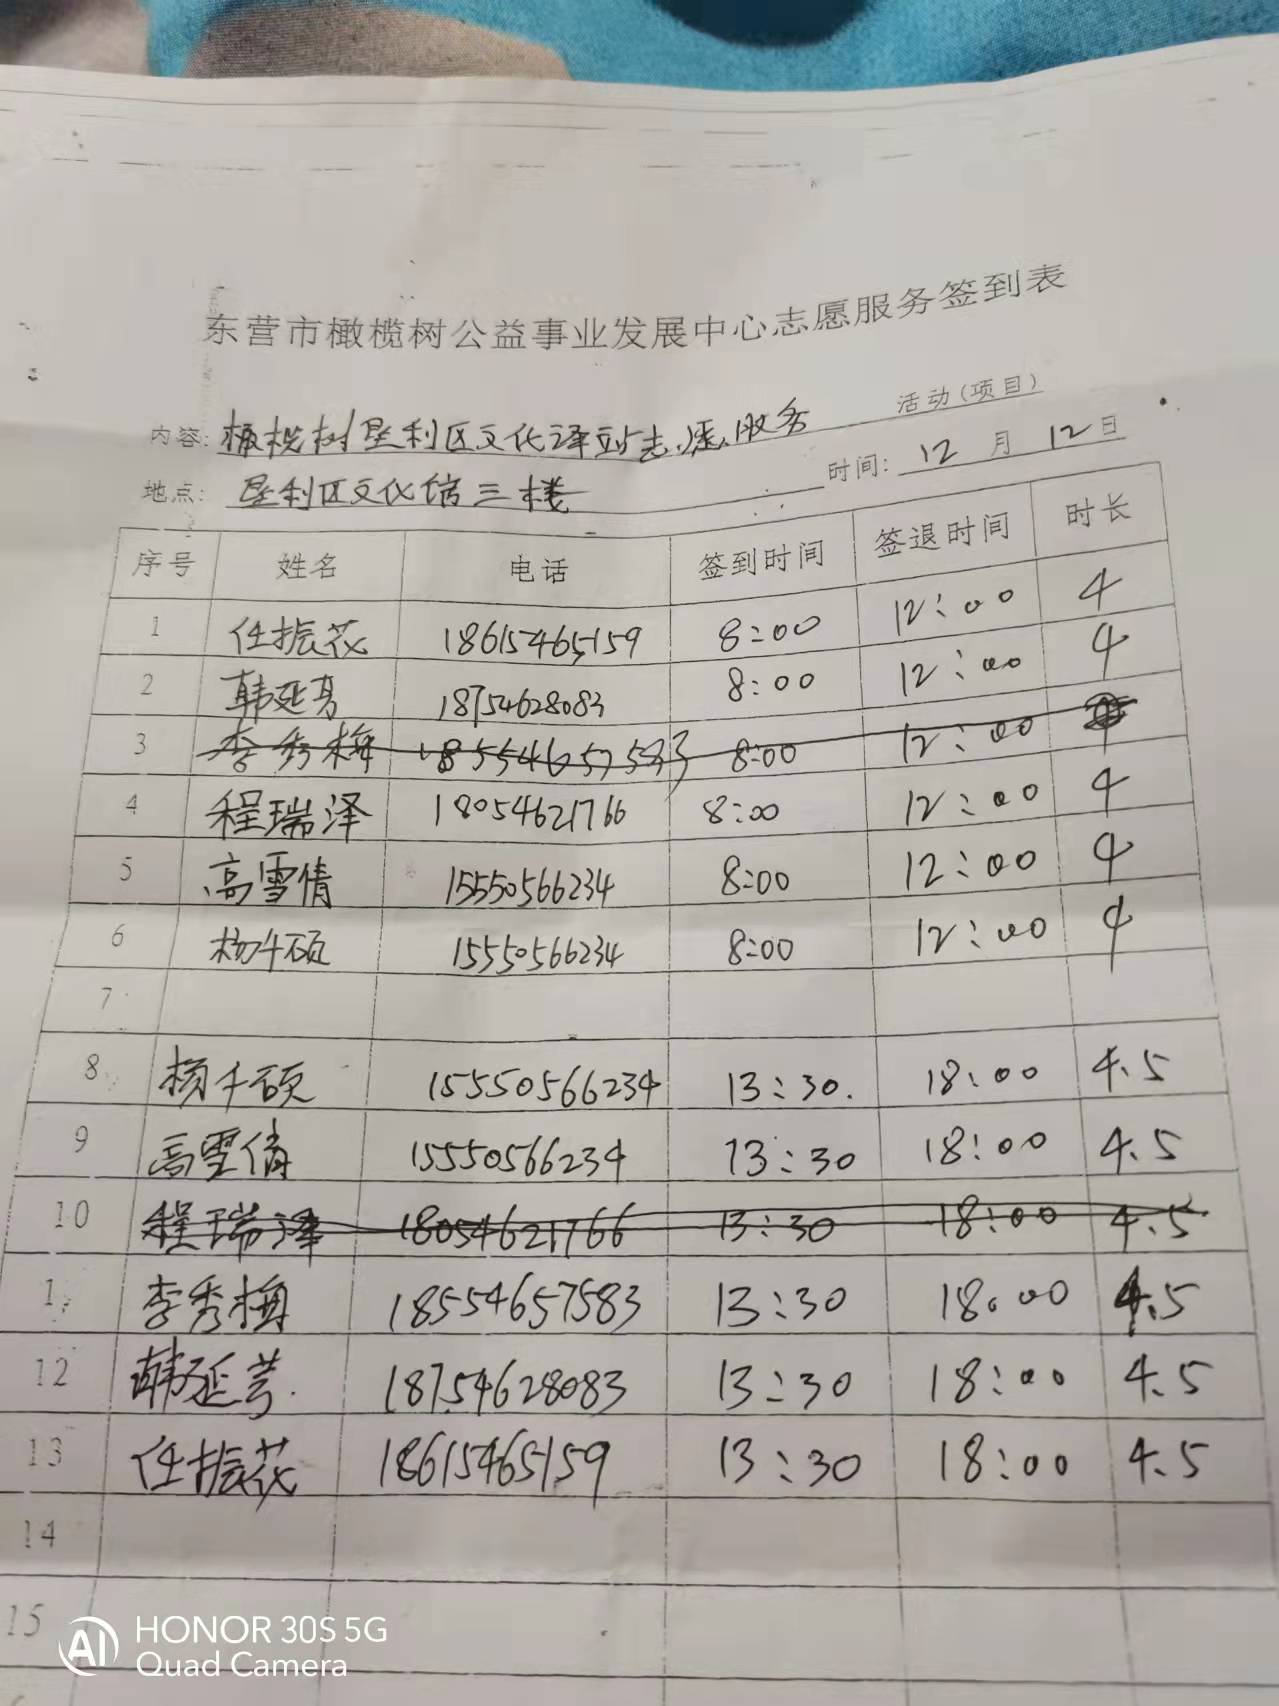 东营市橄榄树公益事业发展中心志愿服务签到表
内容: 橄榄树垦利区文化驿站志愿服务 活动(项目)
地点: 垦利区文化馆三楼 时间: 12月12日
序号 姓名 电话 签到时间 签退时间 时长
1 任振花 18615465159 8:00 12:00 4
2 韩延 18754628083 8:00 12:00 4
3 李秀梅 8:00 12:00
4 程瑞泽 18054621766 8:00 12:00 4
5 高雪倩 15550566234 8:00 12:00 4
6 杨千硕 15550566234 8:00 12:00 4
7
8 杨千硕 15550566234 13:30. 18:00 4.5
9 高雪倩 15550566234 13:30 18:00 4.5
10 程瑞泽 18054621766 13:30 18:00 4.5
1 李秀梅 18554657583 13:30 18:00 4.5
12 韩延芳. 18754628083 13:30 18:00 4.5
13 任振花 18615465159 13:30 18:00 4.5
14
15
AI HONOR 30S 5G
Quad Camera